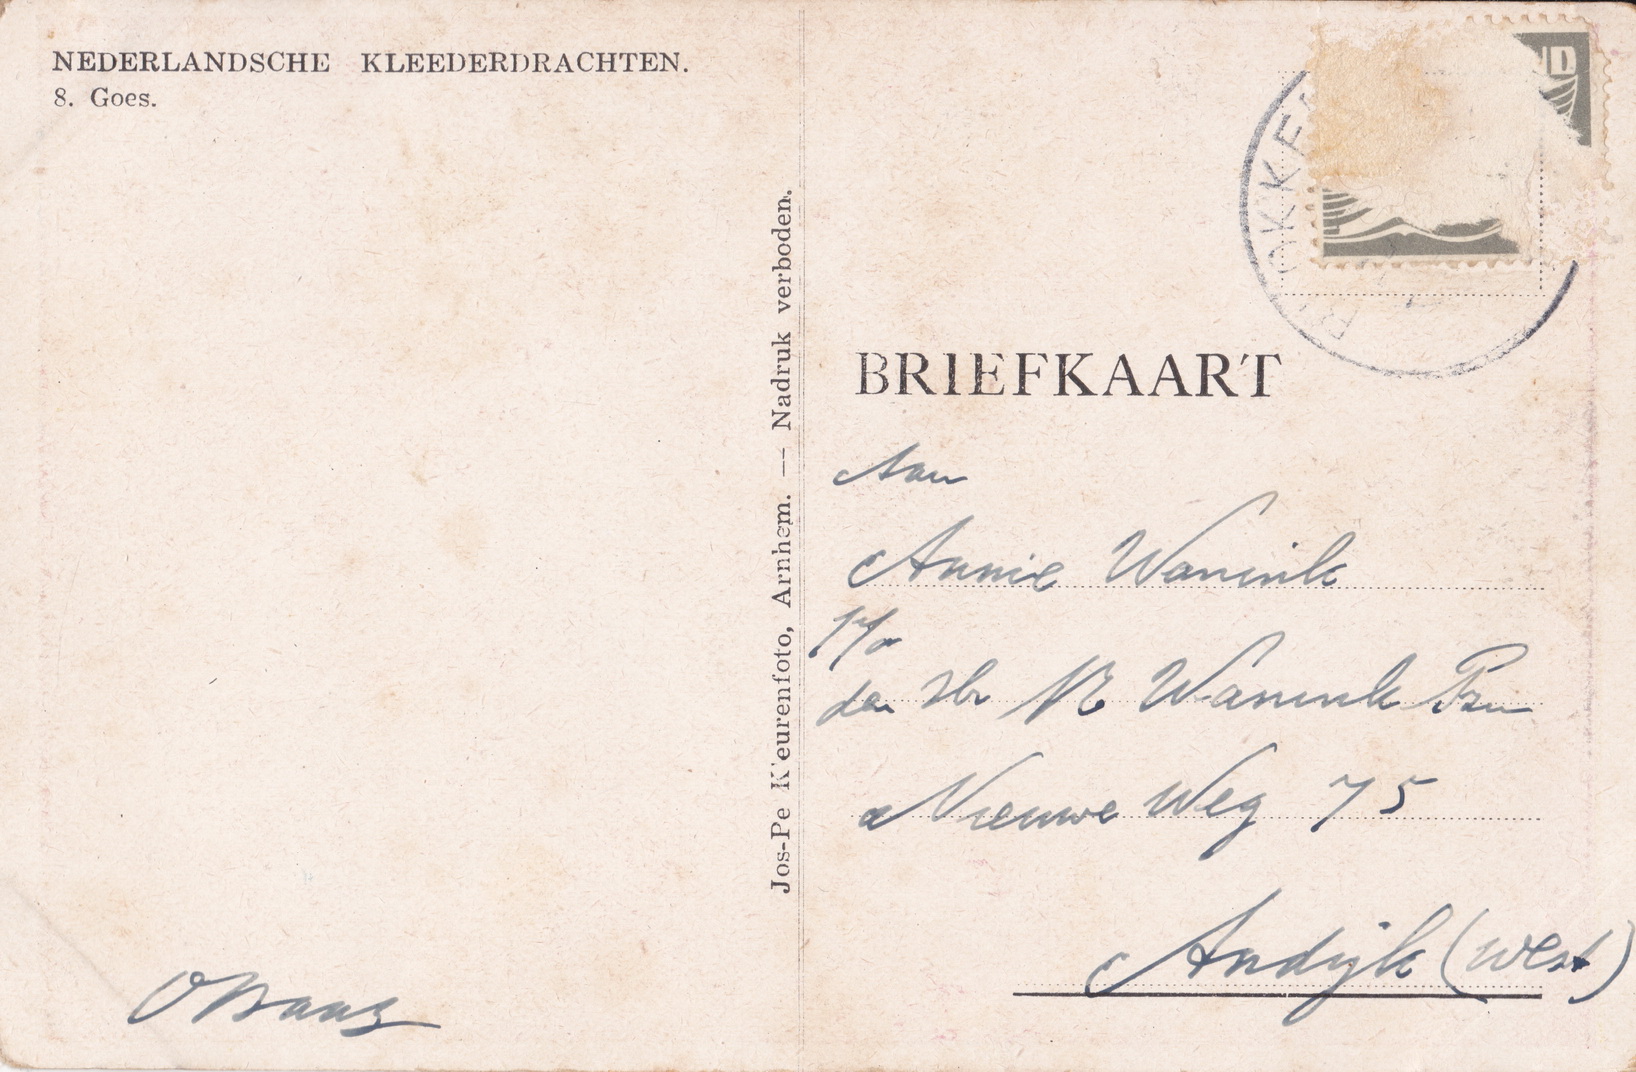 NEDERLANDSCHE KLEEDERDRACHTEN.
8. Goes.
Jos-Pe Kleurenfoto, Arnhem. — Nadruk verboden.
BRIEFKAART
Aan
Annie Wanink
p/a
den Hr Wanink Pzn
Nieuwe Weg 75
Andijk (West)